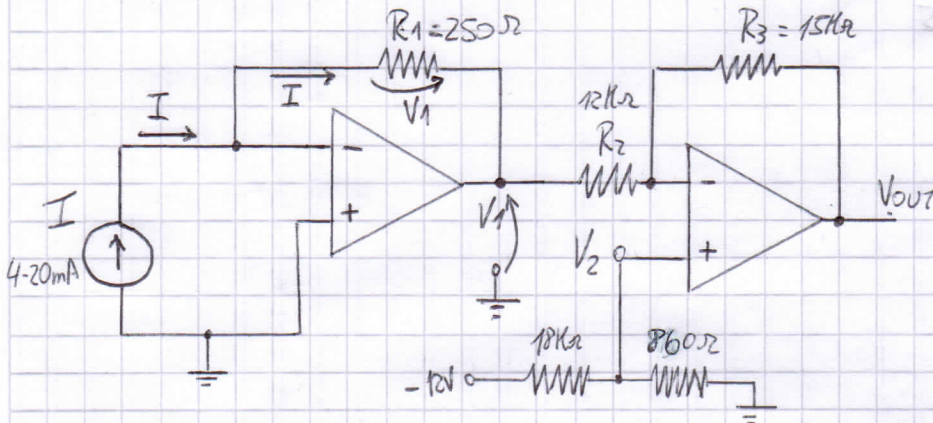 R1=250Ω
R3=15KΩ
I
V1
12KΩ
R2
I
-
+
-
+
I
4-20mA
V1
V2
VOUT
18KΩ
860Ω
-12V